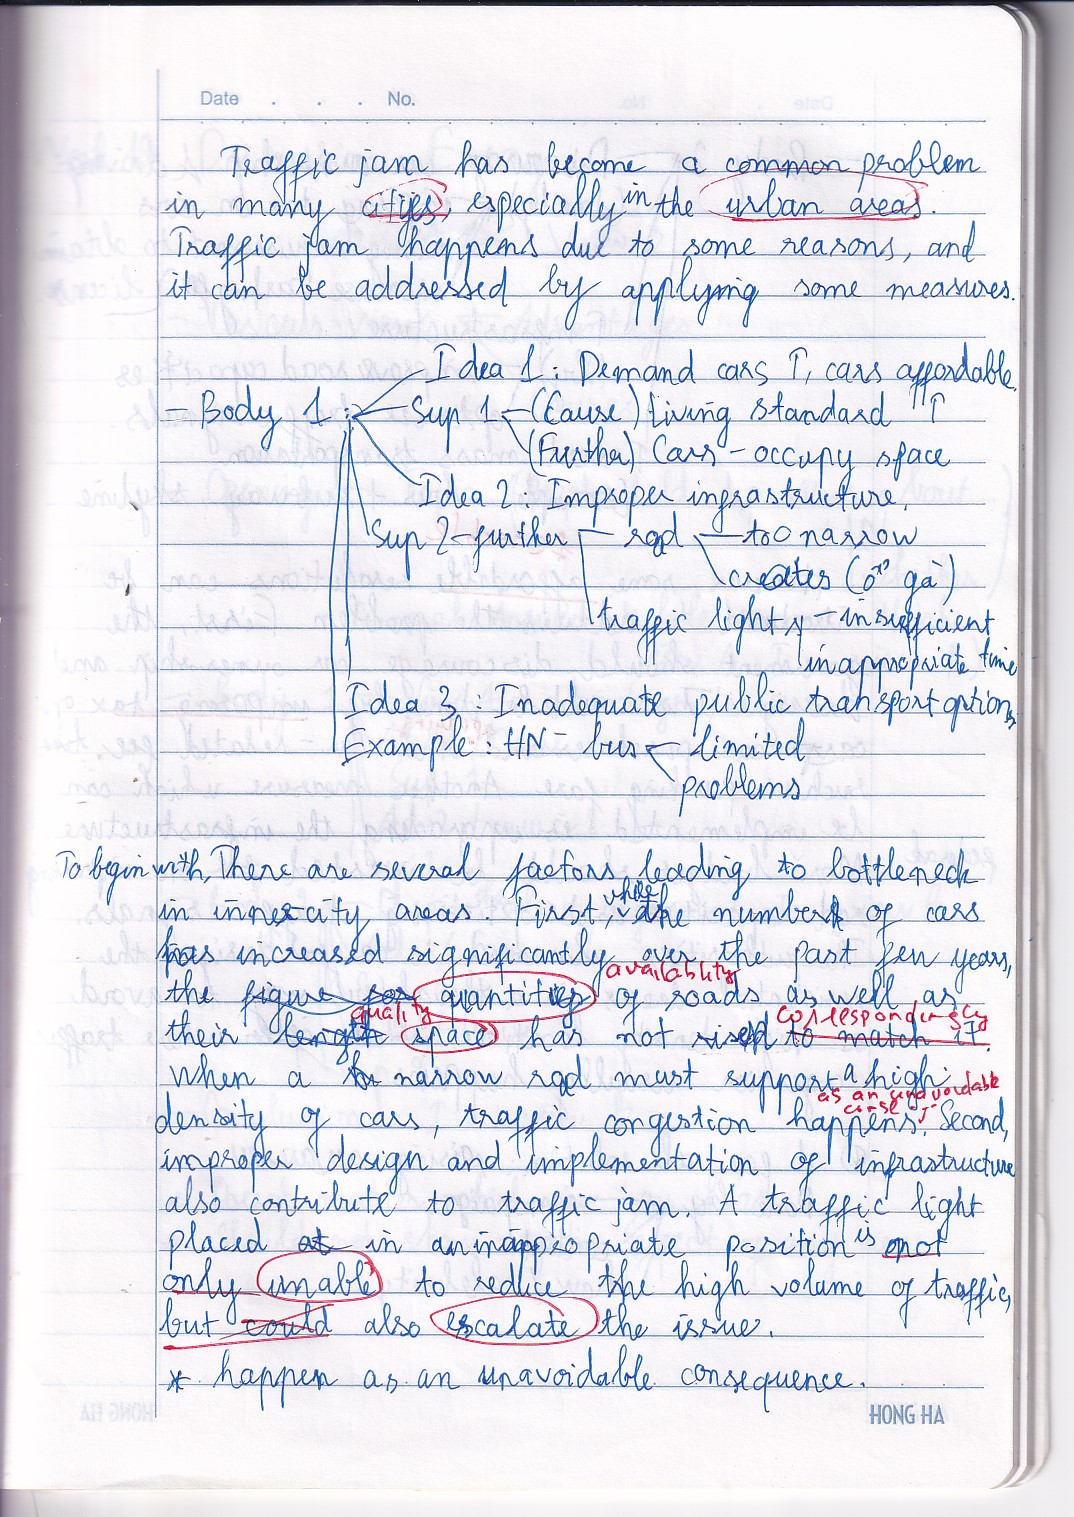 Date . . . No.
Traffic jam has become a common problem
in many cities, especially in the urban areas.
Traffic jam happens due to some reasons, and
it can be addressed by applying some measures.
Idea 1: Demand cars ↑, cars affordable
- Body 1:
Sup 1 (Cause) Living standard ↑
(Further) Cars - occupy space
Idea 2: Improper infrastructure.
Sup 2 - further road too narrow
creates (ổ gà)
traffic lights - insufficient
inappropriate time
Idea 3: Inadequate public transport options
Example: HN - bus limited
problems
To begin with, There are several factors leading to bottleneck
in inner city areas. First, while the number of cars
has increased significantly over the past few years,
availability
the figure for quantities of roads as well as
quality correspondingly
their length space has not rised to match it.
When a narrow road must support a high
as an unavoidable
conse
density of cars, traffic congestion happens. Second,
improper design and implementation of infrastructure
also contribute to traffic jam. A traffic light
placed at in an inappropriate position is not
only unable to reduce the high volume of traffic,
but could also escalate the issue.
* happen as an unavoidable consequence.
HONG HA